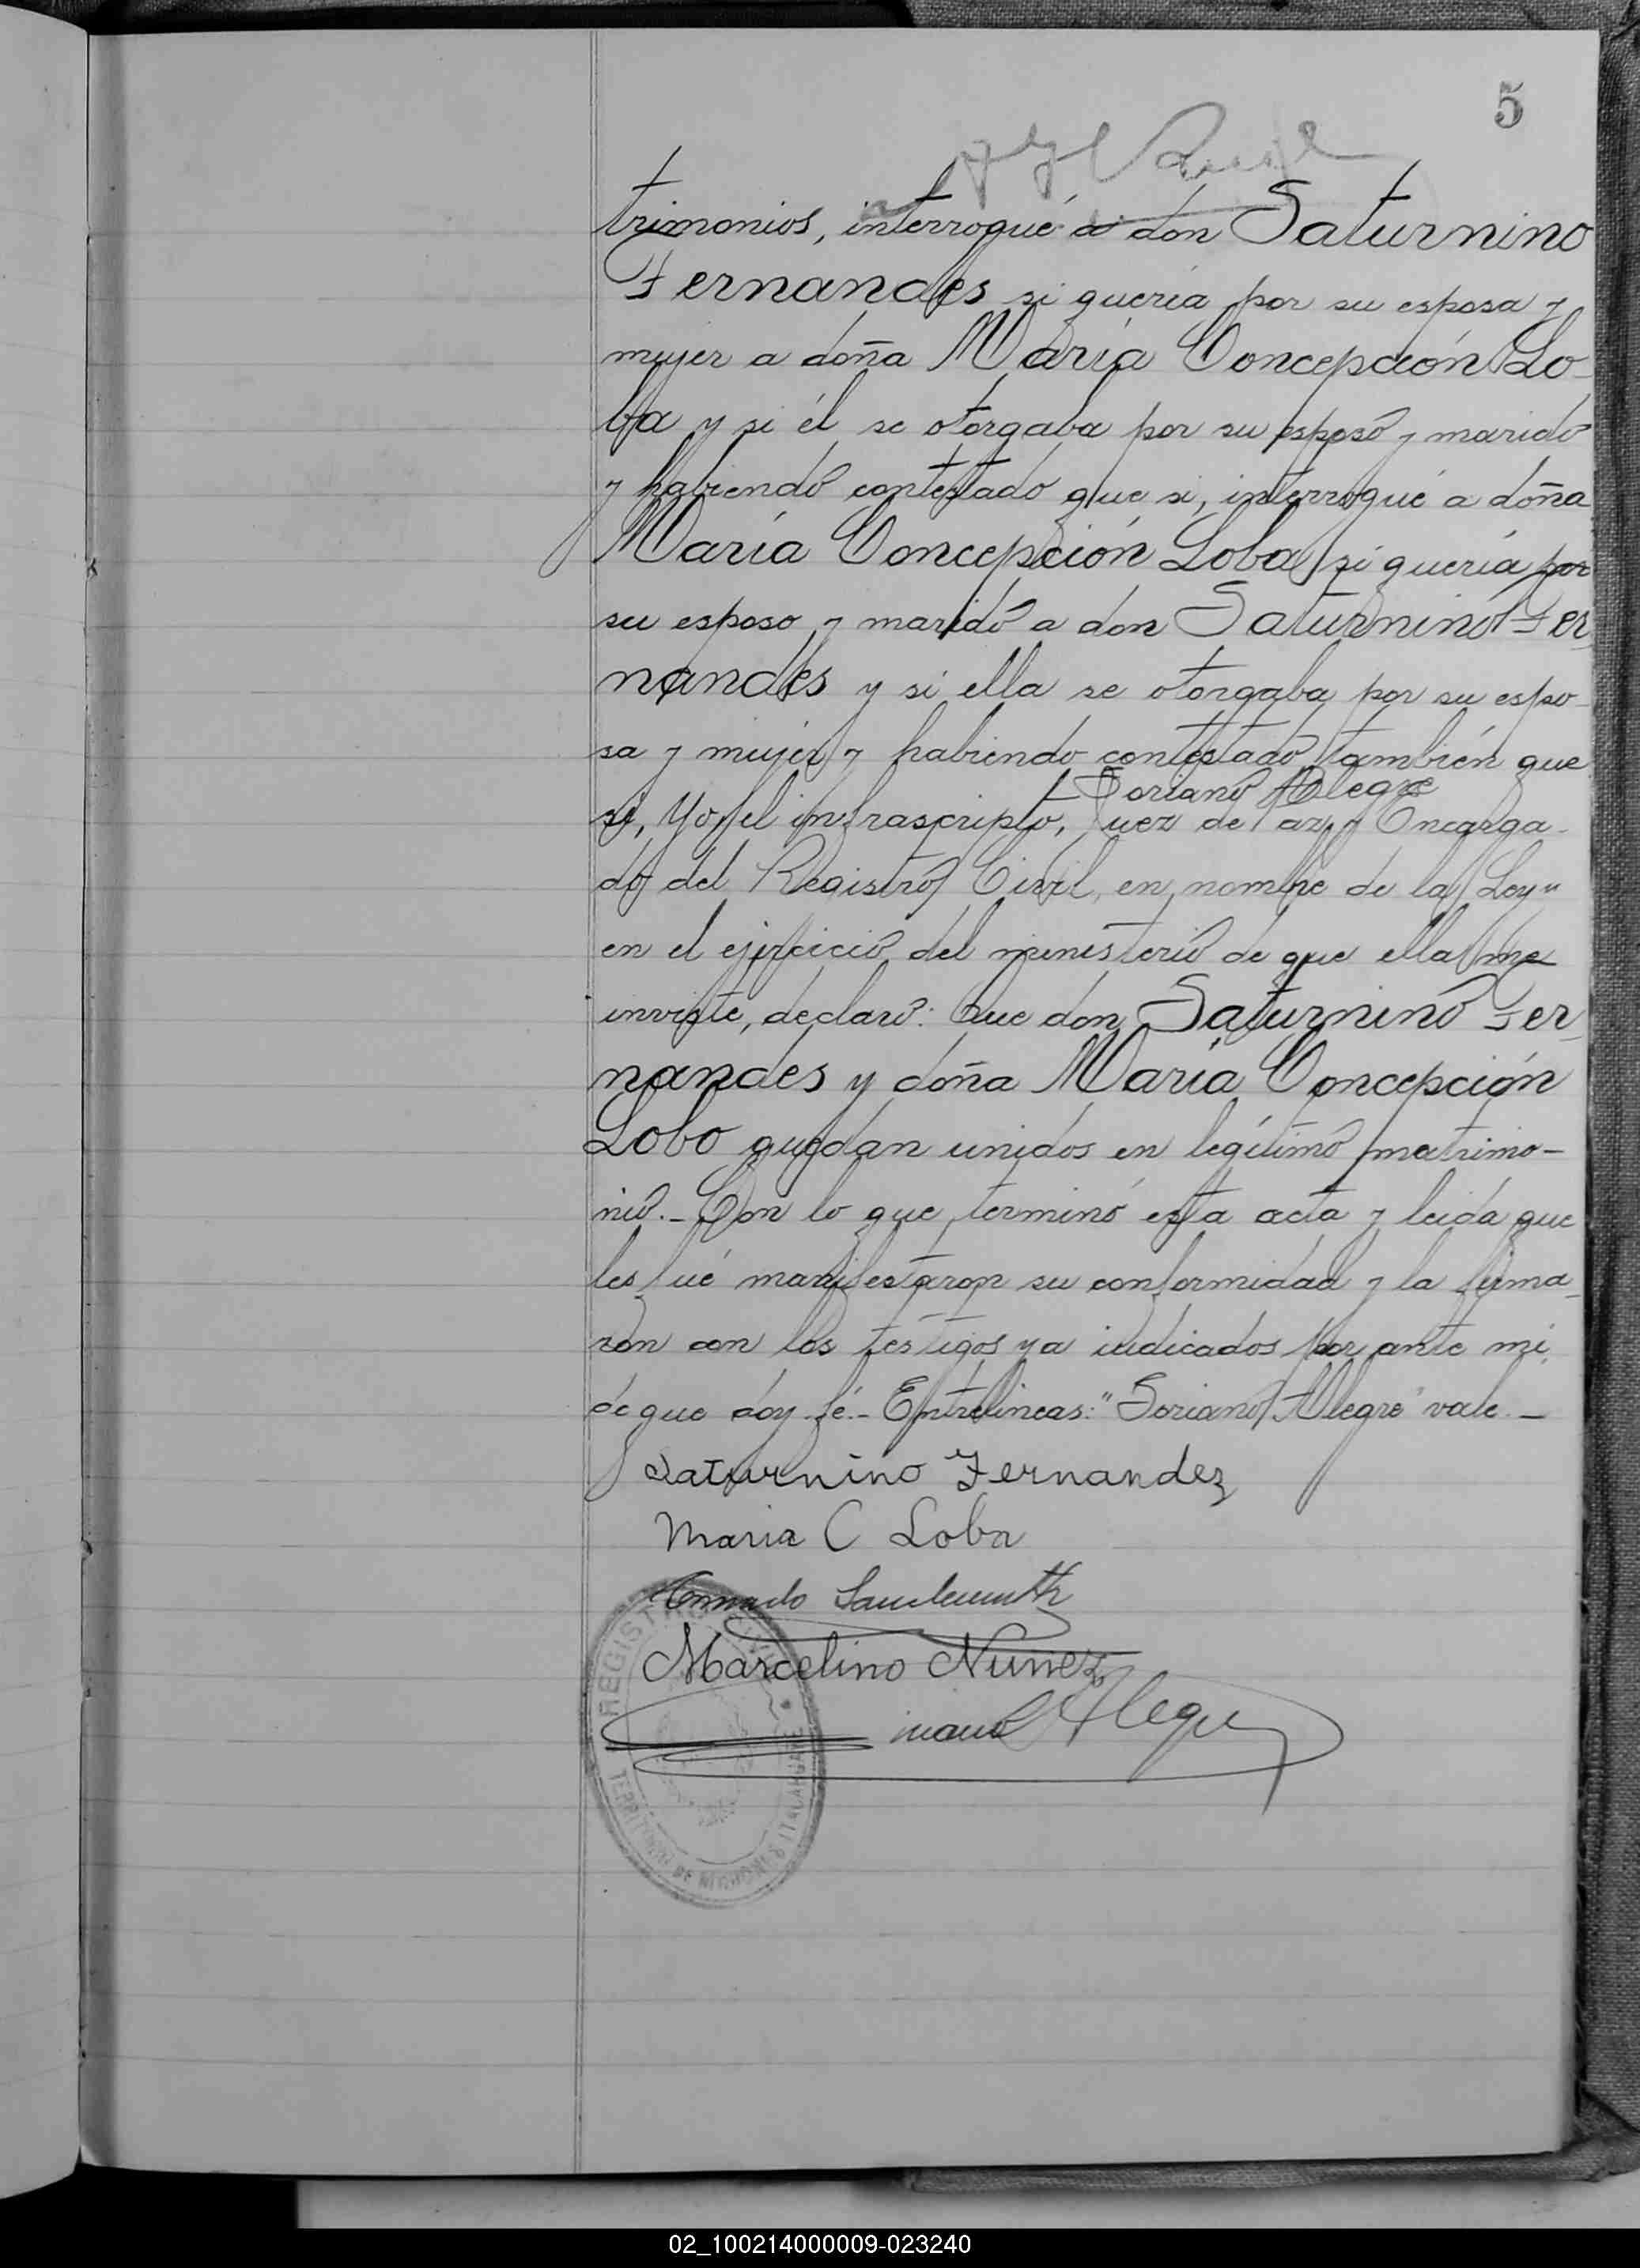 5
trimonios, interrogué a don Saturnino
Fernandes si quería por su esposa y
mujer a doña María Concepción Lo-
ba y si él se otorgaba por su esposo y marido
y habiendo contestado que si, interrogué a doña
María Concepción Loba si quería por
su esposo y marido a don Saturnino Fer
nandes y si ella se otorgaba por su espo-
sa y mujer y habiendo contestado también que
Soriano Alegre
si, Yo, el infrascripto, Juez de Paz y Encarga-
do del Registro Civil, en nombre de la Ley y
en el ejercicio del ministerio de que ella me
inviste, declaro: Que don Saturnino Fer
nandes y doña María Concepción
Lobo quedan unidos en legítimo matrimo-
nio.- Con lo que terminó esta acta y leida que
les fué manifestaron su conformidad y la firma-
ron con los testigos ya indicados por ante mi
de que doy fé.- Entrelineas: "Soriano Alegre" vale.-
Saturnino Fernandez
Maria C Loba
Marcelino Nuñez
Alegre
REGISTRO CIVIL
TERRITORIO DE MISIONES
02_100214000009-023240